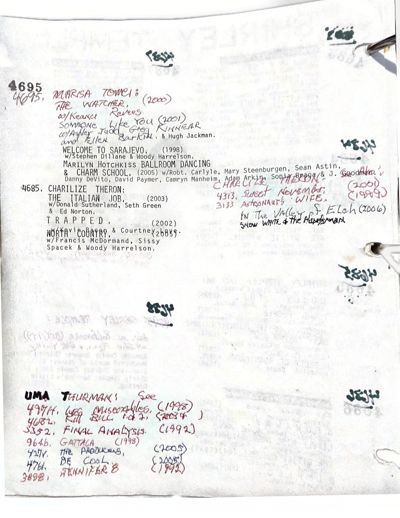 4695
4695. MARISA TOMEI:
THE WATCHER. (2000)
w/Keanu Reeves
SOMEONE LIKE YOU (2001)
w/Ashley Judd, Greg KINNEAR
and Ellen BARKIN & Hugh Jackman.
WELCOME TO SARAJEVO. (1998)
w/Stephen Dillane & Woody Harrelson.
MARILYN HOTCHKISS BALLROOM DANCING
& CHARM SCHOOL. (2005) w/Robt. Carlyle, Mary Steenburgen, Sean Astin,
Danny DeVito, David Paymer, Camryn Manheim, Adam Arkin, Sonia Braga & J.
4685. CHARLIZE THERON:
THE ITALIAN JOB. (2003)
w/Donald Sutherland, Seth Green
& Ed Norton.
TRAPPED. (2002)
NORTH COUNTRY.
w/Francis McDormand, Sissy
Spacek & Woody Harrelson.
CHARLIZE THERON:
4313. Sweet November. (2001)
3133 ASTRONAUT'S WIFE. (1999)
IN The Valley of Elah (2006)
SNOW WHITE & The Huntsman
UMA THURMAN: See
4974. Les MISERABLES. (1998)
4682. Kill BILL 1 & 2.
3352. FINAL ANALYSIS. (1992)
9646. GATTACA (1998)
THE PRODUCERS, (2005)
BE COOL (2005)
3898. JENNIFER 8 (1992)